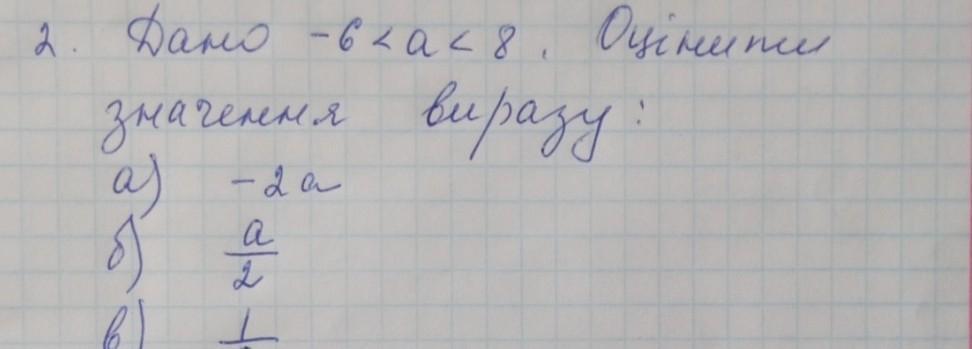 2. Дано -6 < a < 8. Оцінити
значення виразу:
а) -2a
б) a/2
в) 1